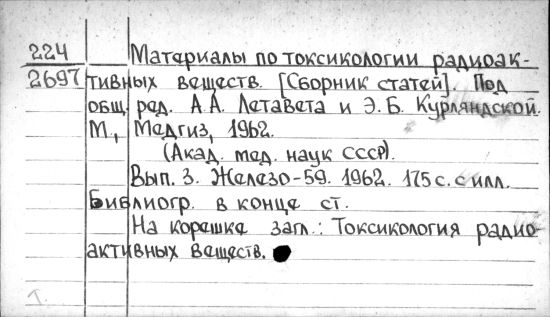 224 Материалы по токсикологии радиоак-
2697 тивных веществ. [Сборник статей]. Под
общ. ред. А.А. Летавета и Э.Б. Курляндской.
М., Медгиз, 1962.
(Акад. мед. наук СССР).
Вып. 3. Железо-59. 1962. 175 с. с илл.
Библиогр. в конце ст.
На корешке загл.: Токсикология радио-
активных веществ.